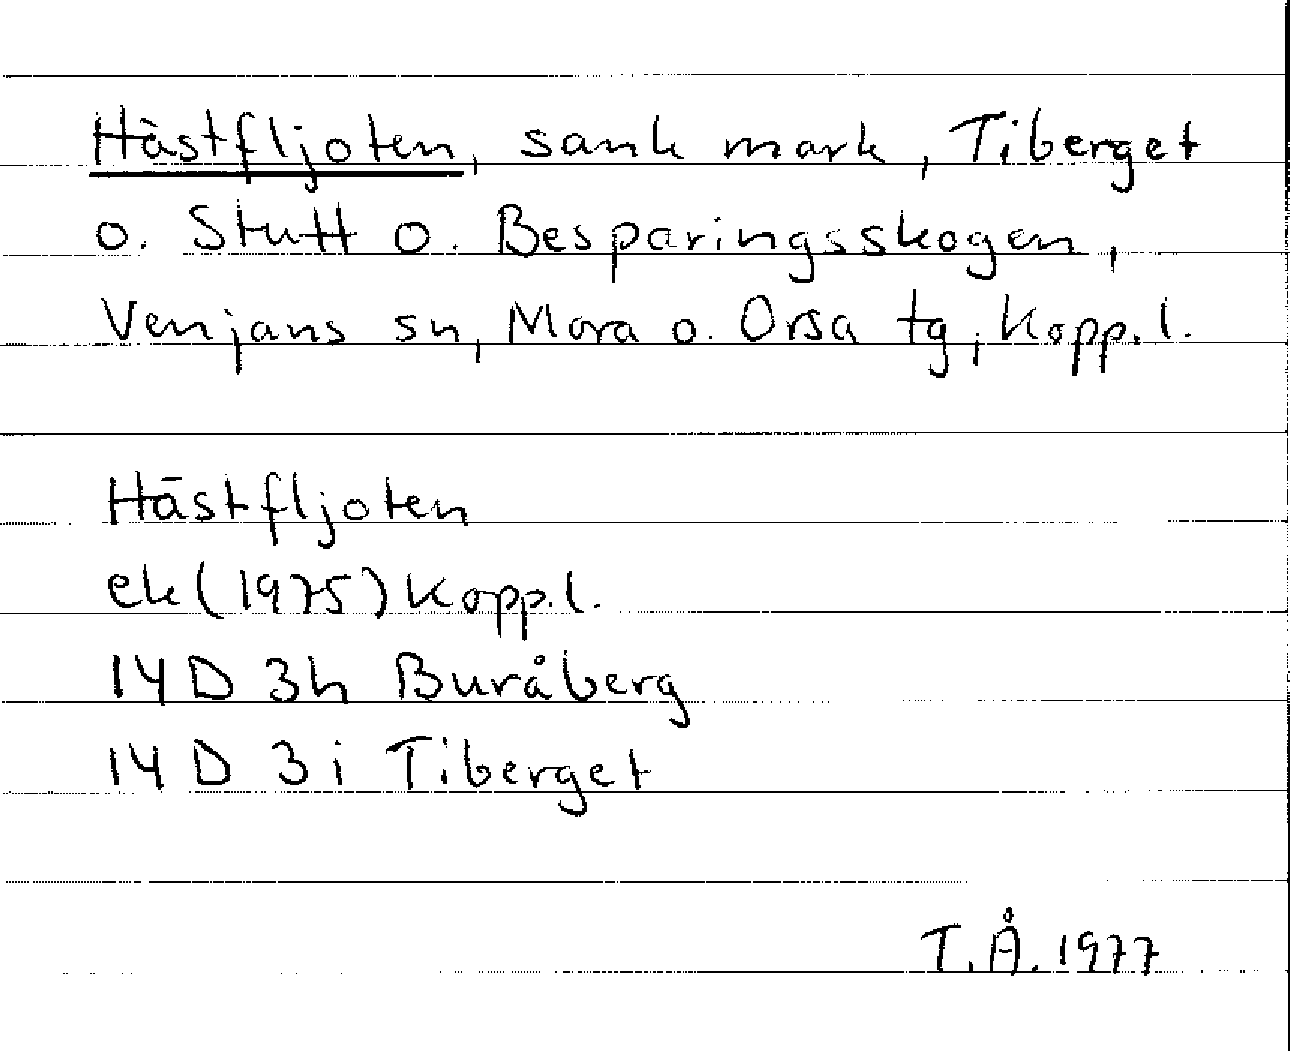 Hästfljoten, sank mark, Tiberget
o. Stutt o. Besparingsskogen,
Venjans sn, Mora o. Orsa tg, Kopp. l.
Hästfljoten
ek (1975) Kopp. l.
14 D 3h Buråberg
14 D 3i Tiberget
T.Å. 1977